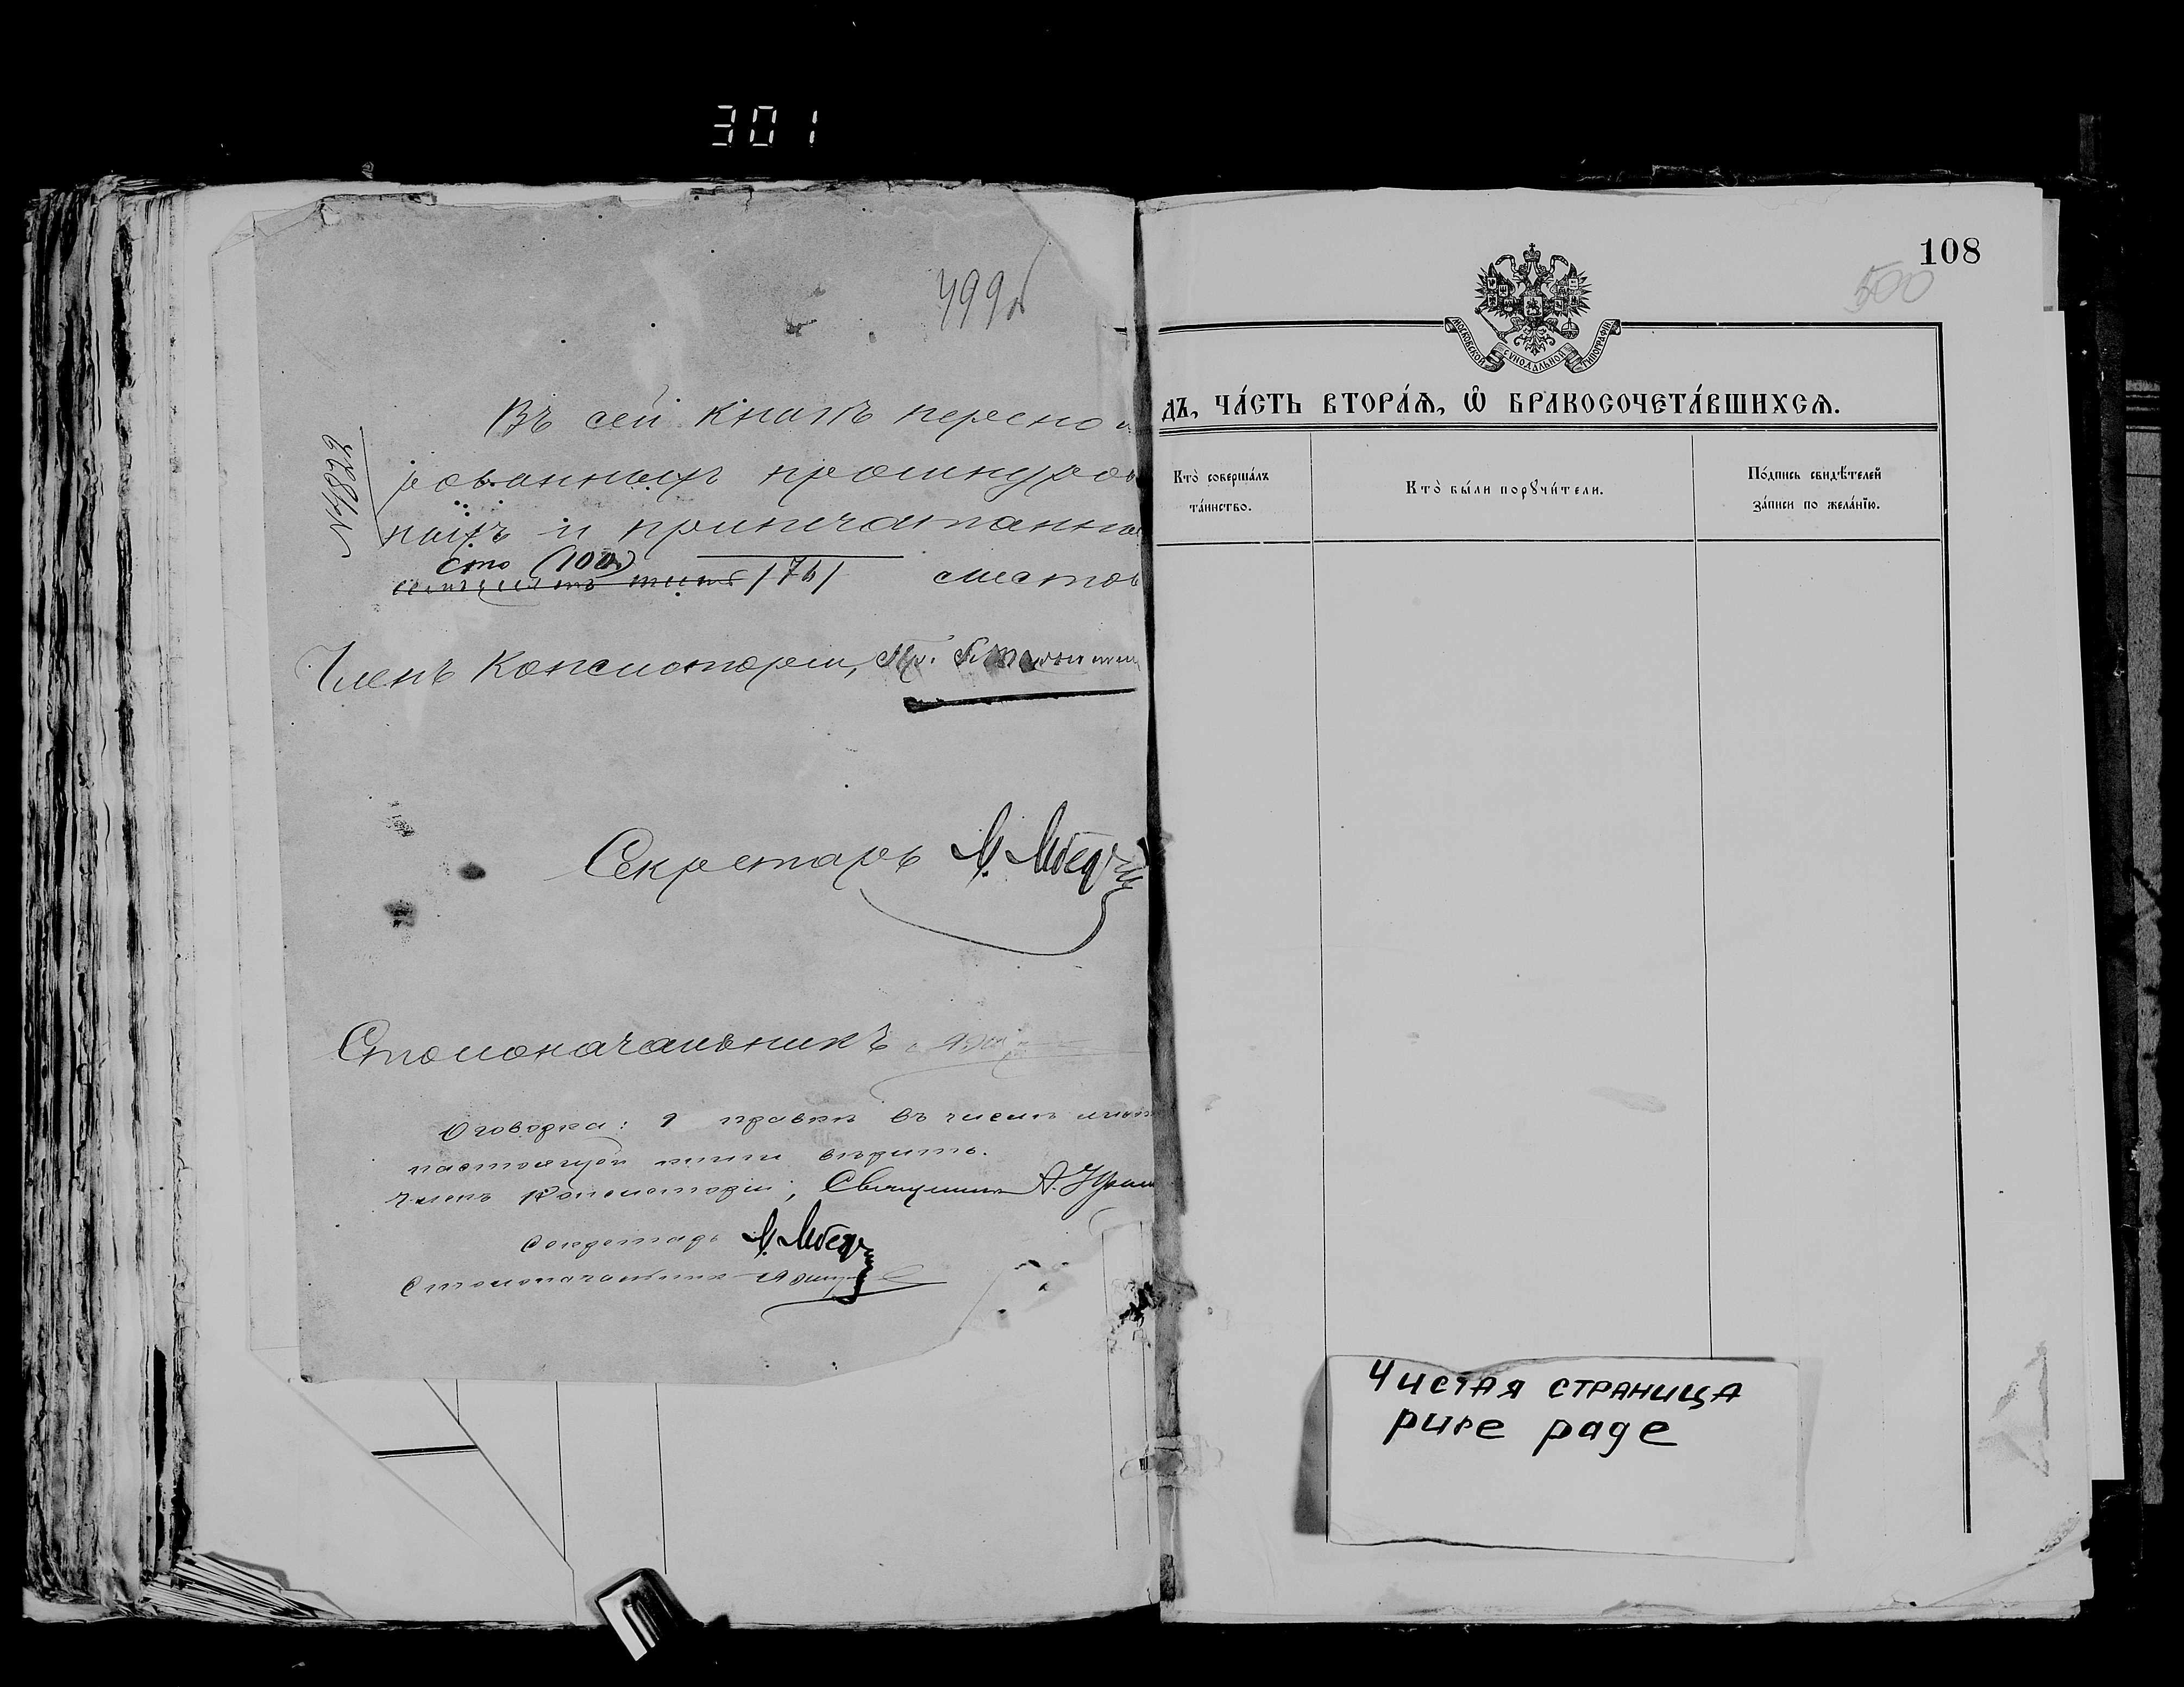 301
499б
Въ сей книгѣ перено
рованныхъ прошнуров
ныхъ и припечатанны
сто (100)
/76/ листов
№ 14822
Членъ Консисторіи, Пр.
Секретарь
Столоначальникъ
Оговорка: правкѣ въ числѣ
настоящей книги вѣрить.
Членъ Консисторіи, Священникъ А.
Секретарь
Столоначальникъ
108
500
МОСКОВСКОЙ СѴНОДАЛЬНОЙ ТИПОГРАФІИ
дъ, ча́сть втора́ѧ, ѡ҆ бракосочета́вшихсѧ.
Кто̀ соверша́лъ
та́инство.
Кто̀ бы́ли порꙋчи́тели.
По́дпись свидѣ́телей
за́писи по жела́нїю.
Чистая страница
pure page